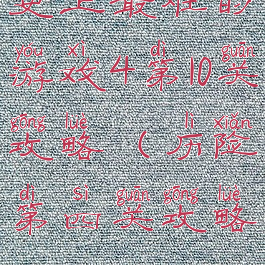 史上最难的
yóu xì dì guān
游戏4第10关
gōng lüè lì xiǎn
攻略(历险
dì sì guān gōng lüè
第四关攻略